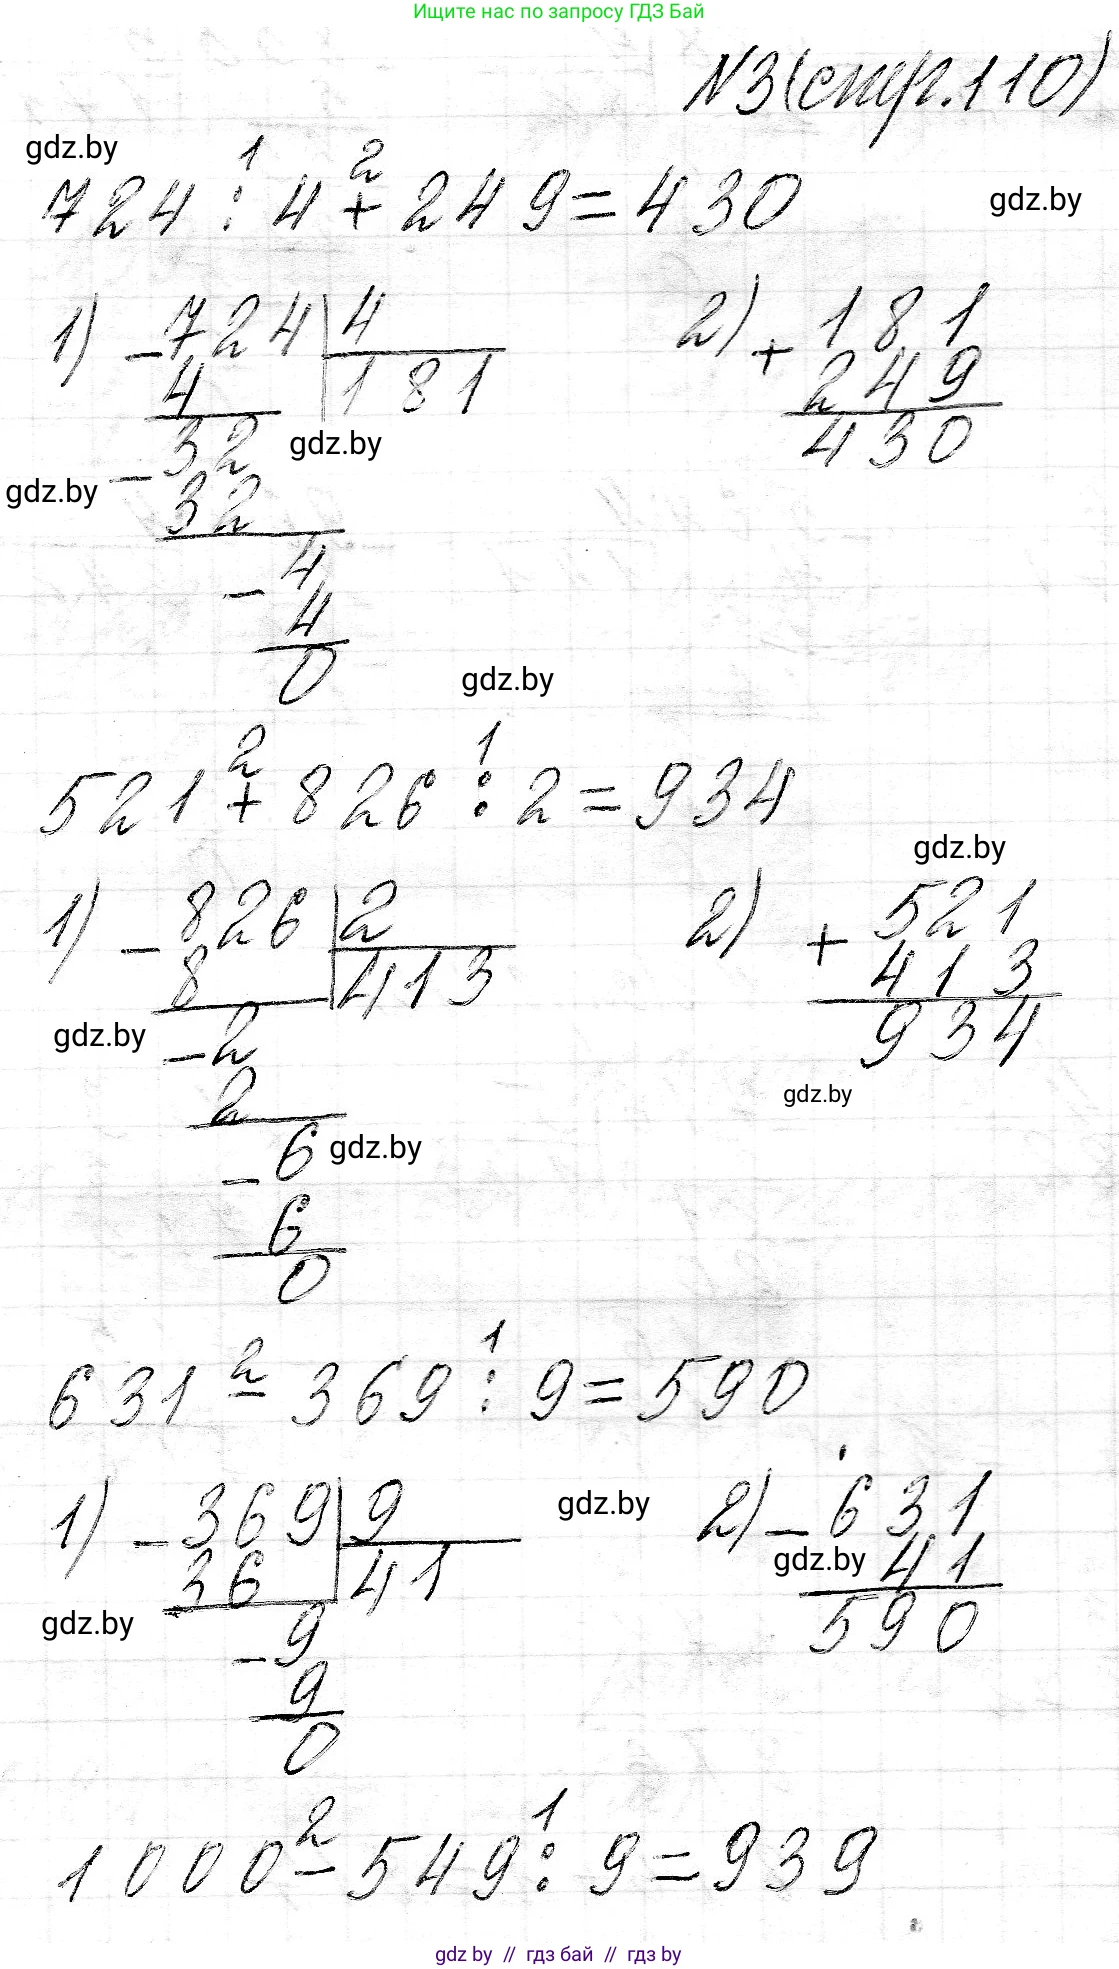 Ищите нас по запросу ГДЗ Бай
№3 (стр. 110)
gdz.by
724 : 4 + 249 = 430
1 2
gdz.by
1) - 724 | 4
4 181
- 32
32
- 4
4
0
gdz.by
gdz.by
2) + 181
249
430
gdz.by
521 + 826 : 2 = 934
2 1
gdz.by
1) - 826 | 2
8 413
- 2
2
- 6
6
0
gdz.by
gdz.by
2) + 521
413
934
gdz.by
631 - 369 : 9 = 590
2 1
1) - 369 | 9
36 41
- 9
9
0
gdz.by
gdz.by
2) - 631
41
590
gdz.by
1000 - 549 : 9 = 939
2 1
gdz by // гдз бай // гдз by